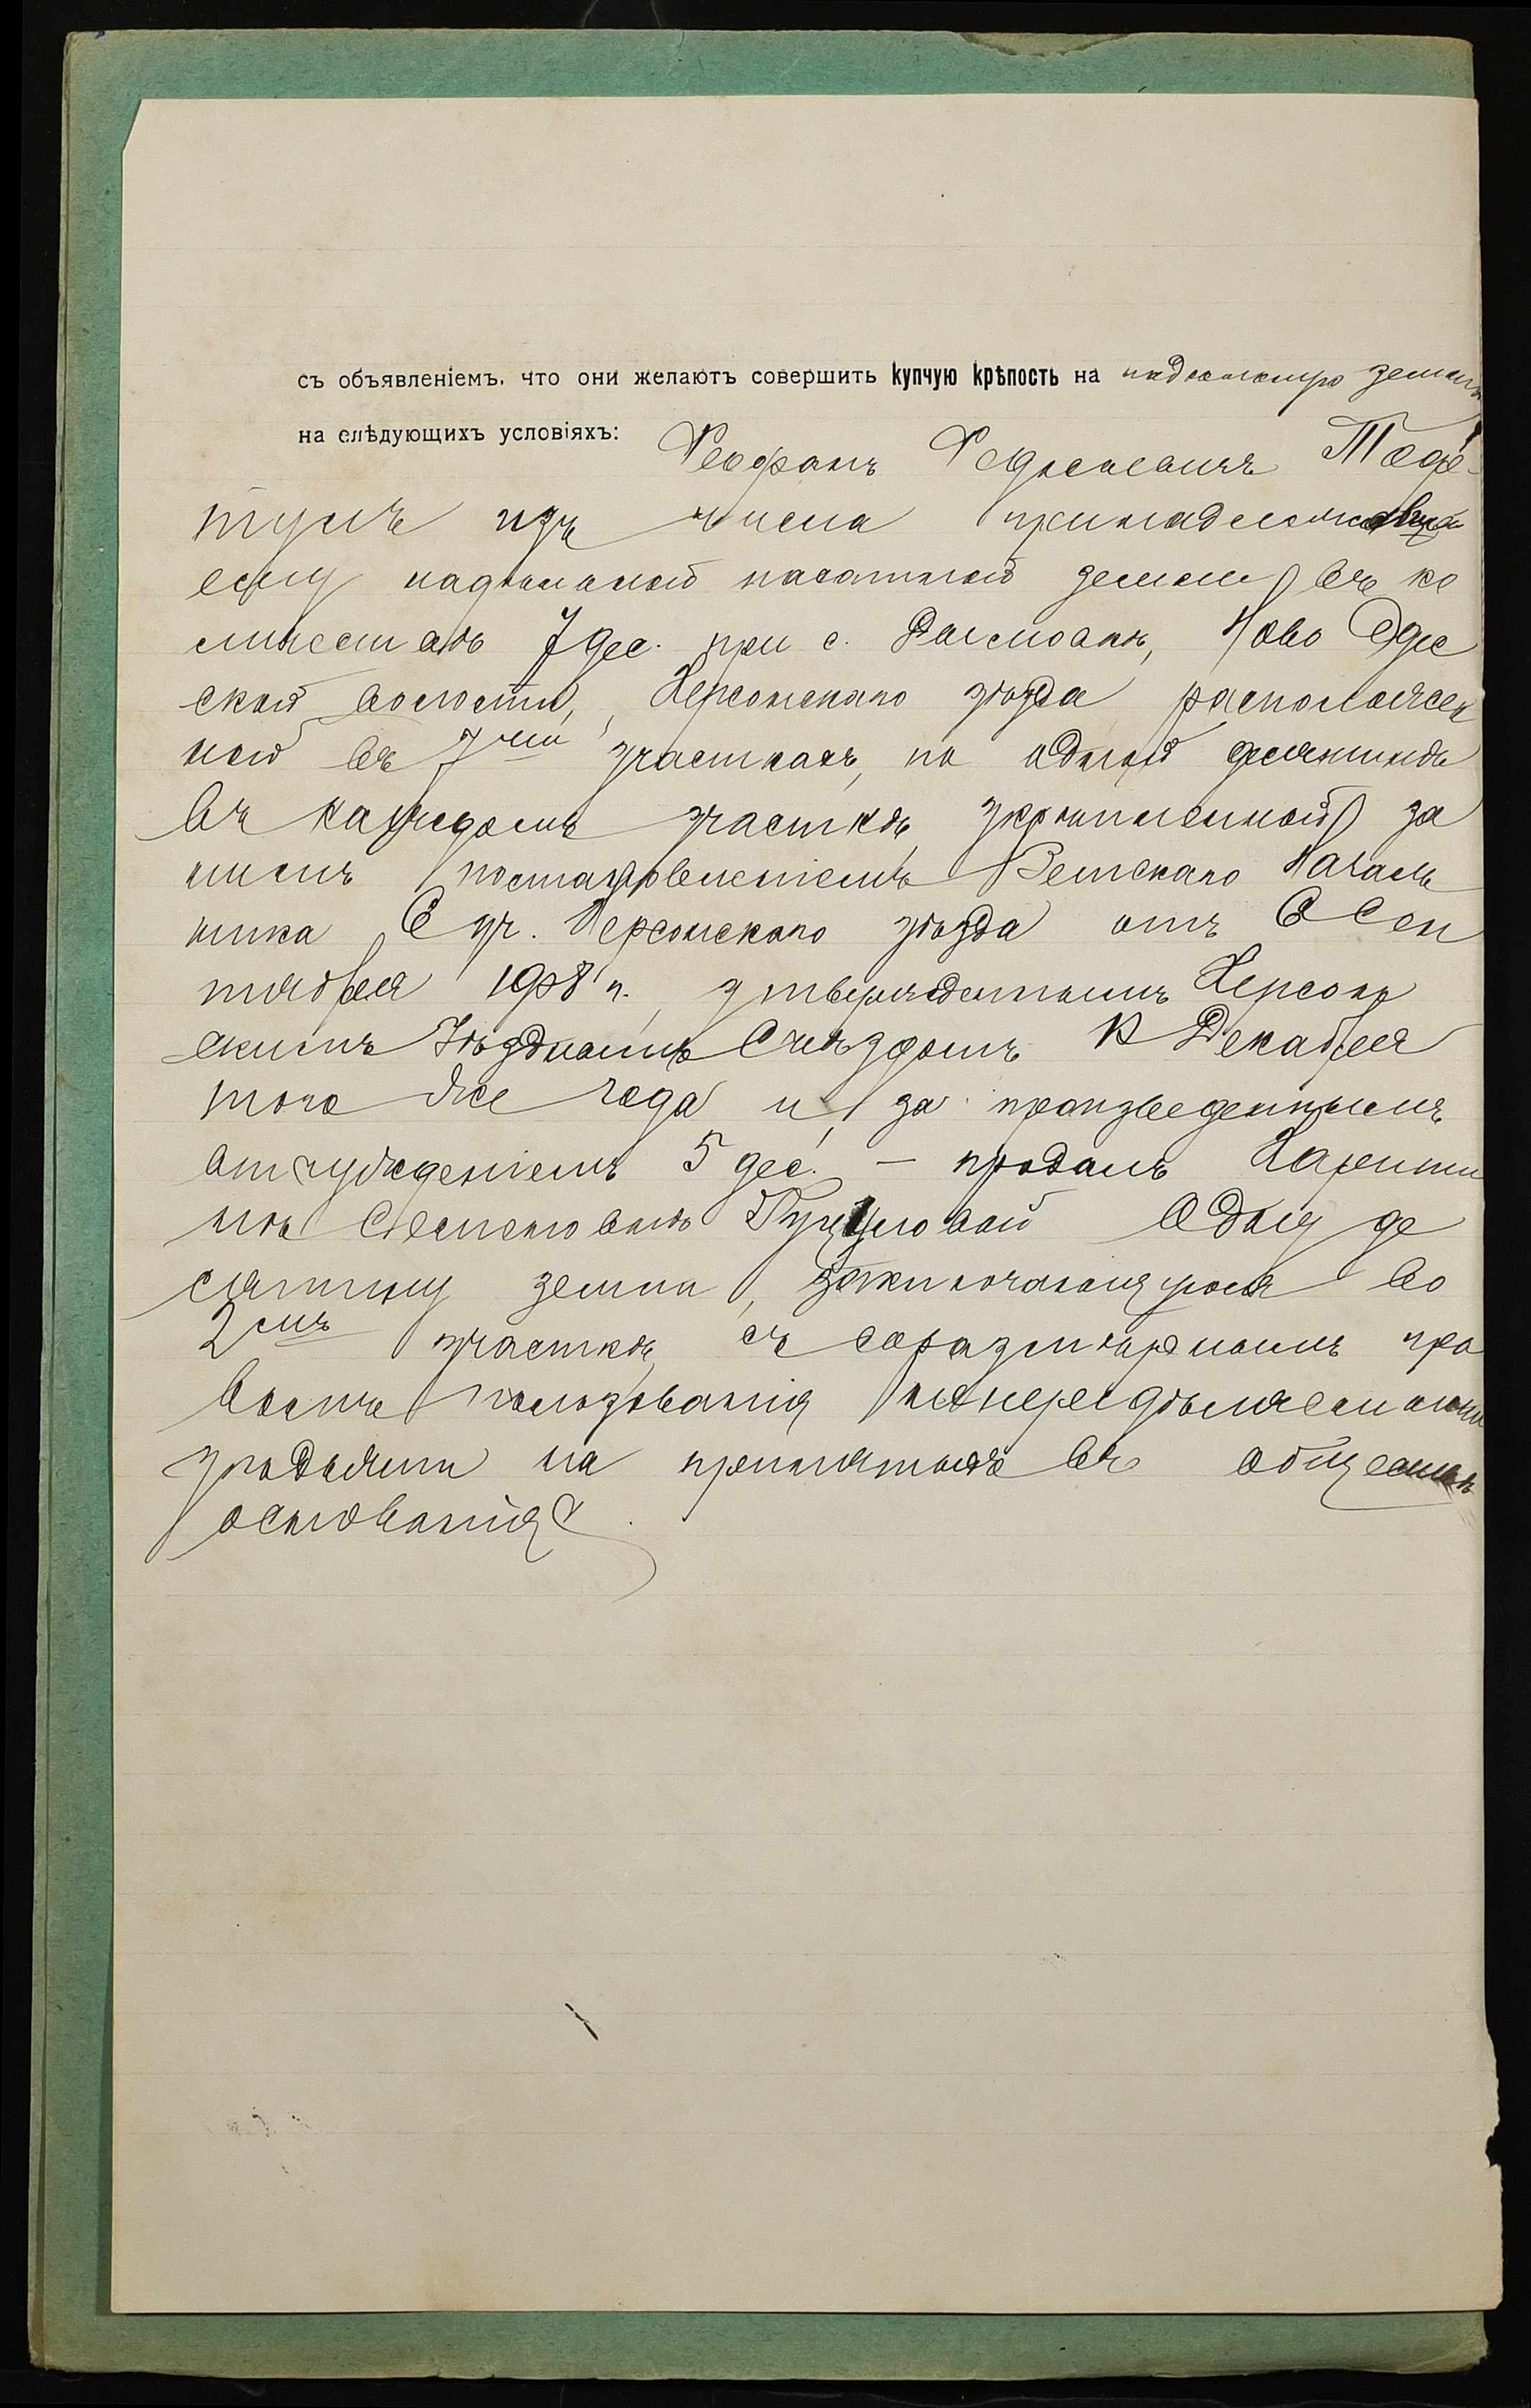 съ объявленіемъ, что они желаютъ совершить купчую крѣпость на надѣльную землю
на слѣдующихъ условіяхъ: Феофанъ Федосеевичъ
изъ числа принадлежавшей
ему надѣльной пахатной земли, въ ко
личествѣ 7 дес. при с. Ново Одес
ской волости, Херсонскаго уѣзда расположен
ной въ 7ми участкахъ, по одной десятинѣ
въ каждомъ участкѣ, укрѣпленной за
нимъ постановленіемъ Земскаго Началь
ника 6 уч. Херсонскаго уѣзда отъ 6 Сен
тября 1908 г., утвержденнымъ Херсон
скимъ Уѣзднымъ Съѣздомъ Декабря
того же года и, за произведеннымъ
отчужденіемъ 5 дес. — продалъ Харити
нѣ Семеновнѣ одну де
сятину земли, заключающуюся во
2мъ участкѣ, съ соразмѣрнымъ пра
вомъ пользованія непередѣляемыми
угодьями на принятыхъ въ обществѣ
основаніяхъ.